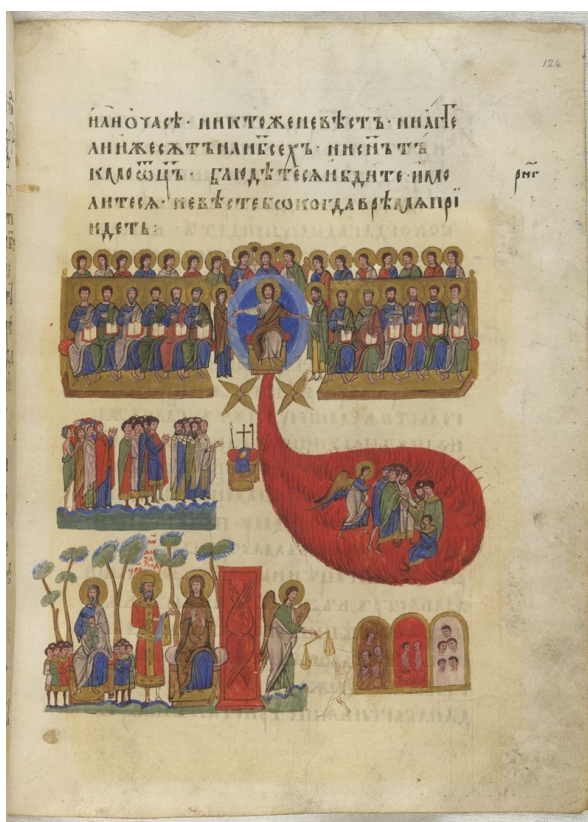 илиочасѣ· никтоженевѣстъ· ниаг҃ге
лиижесѫтънанб҃сехъ· нисн҃ътъ
кмоѡц҃ъ· блюдѣтесѧибдите· имо
литесѧ· невѣстебѡкогдаврѣмѧпрї
идетъ:
рнг
124